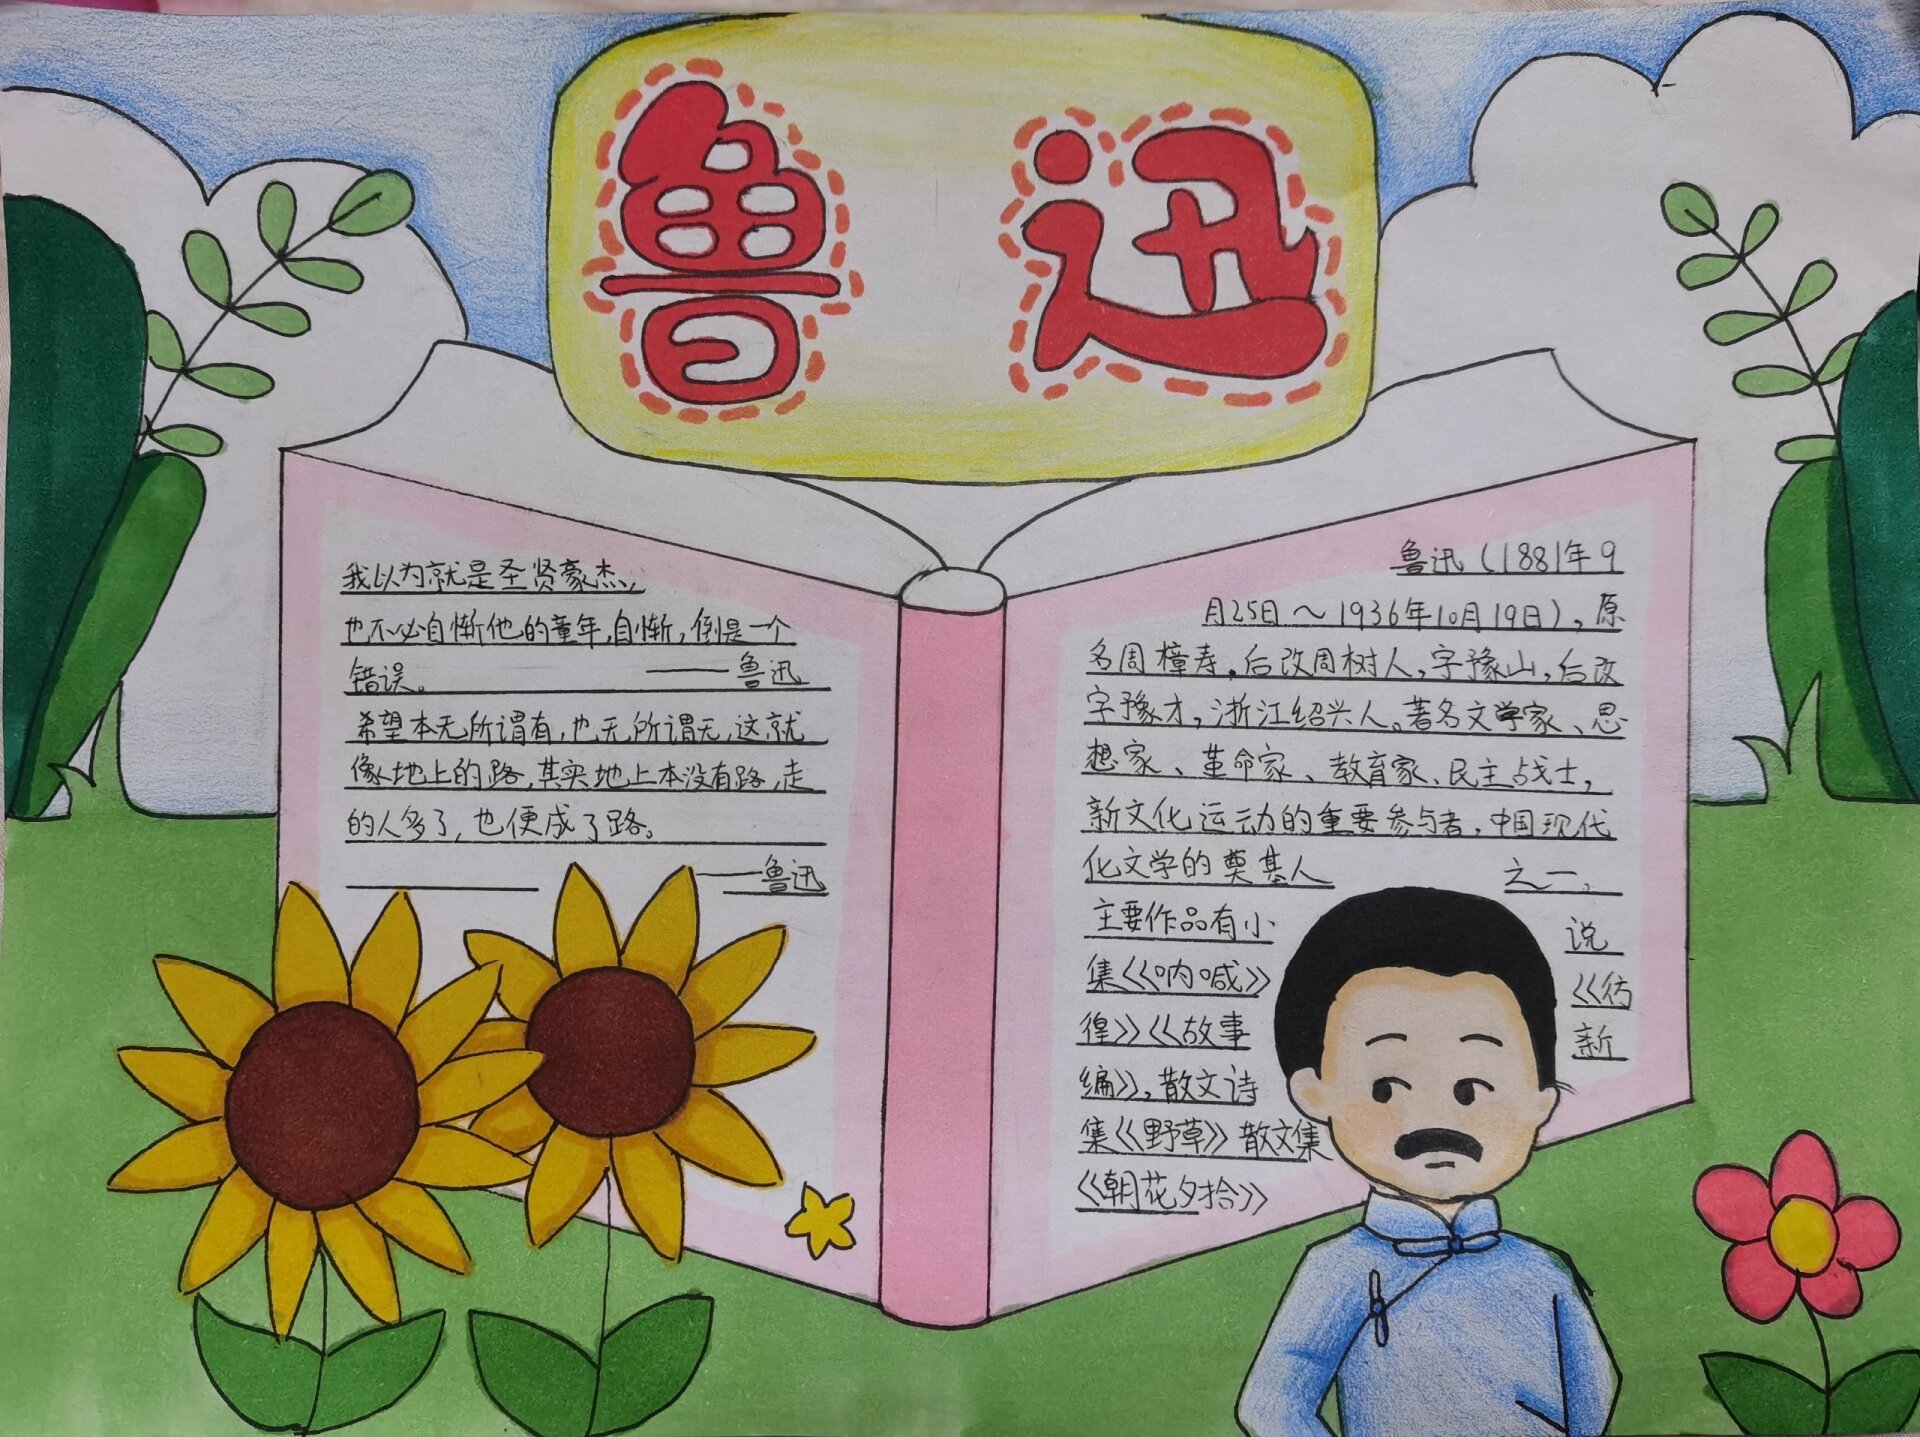 鲁迅
我以为就是圣贤豪杰,
也不必自惭他的童年,自惭,倒是一个
错误。 ——鲁迅
希望本无所谓有,也无所谓无,这就
像地上的路,其实地上本没有路,走
的人多了,也便成了路。
——鲁迅
鲁迅(1881年9
月25日~1936年10月19日),原
名周樟寿,后改周树人,字豫山,后改
字豫才,浙江绍兴人。著名文学家、思
想家、革命家、教育家、民主战士,
新文化运动的重要参与者,中国现代
化文学的奠基人之一。
主要作品有小说
集《呐喊》《彷
徨》《故事新
编》,散文诗
集《野草》散文集
《朝花夕拾》